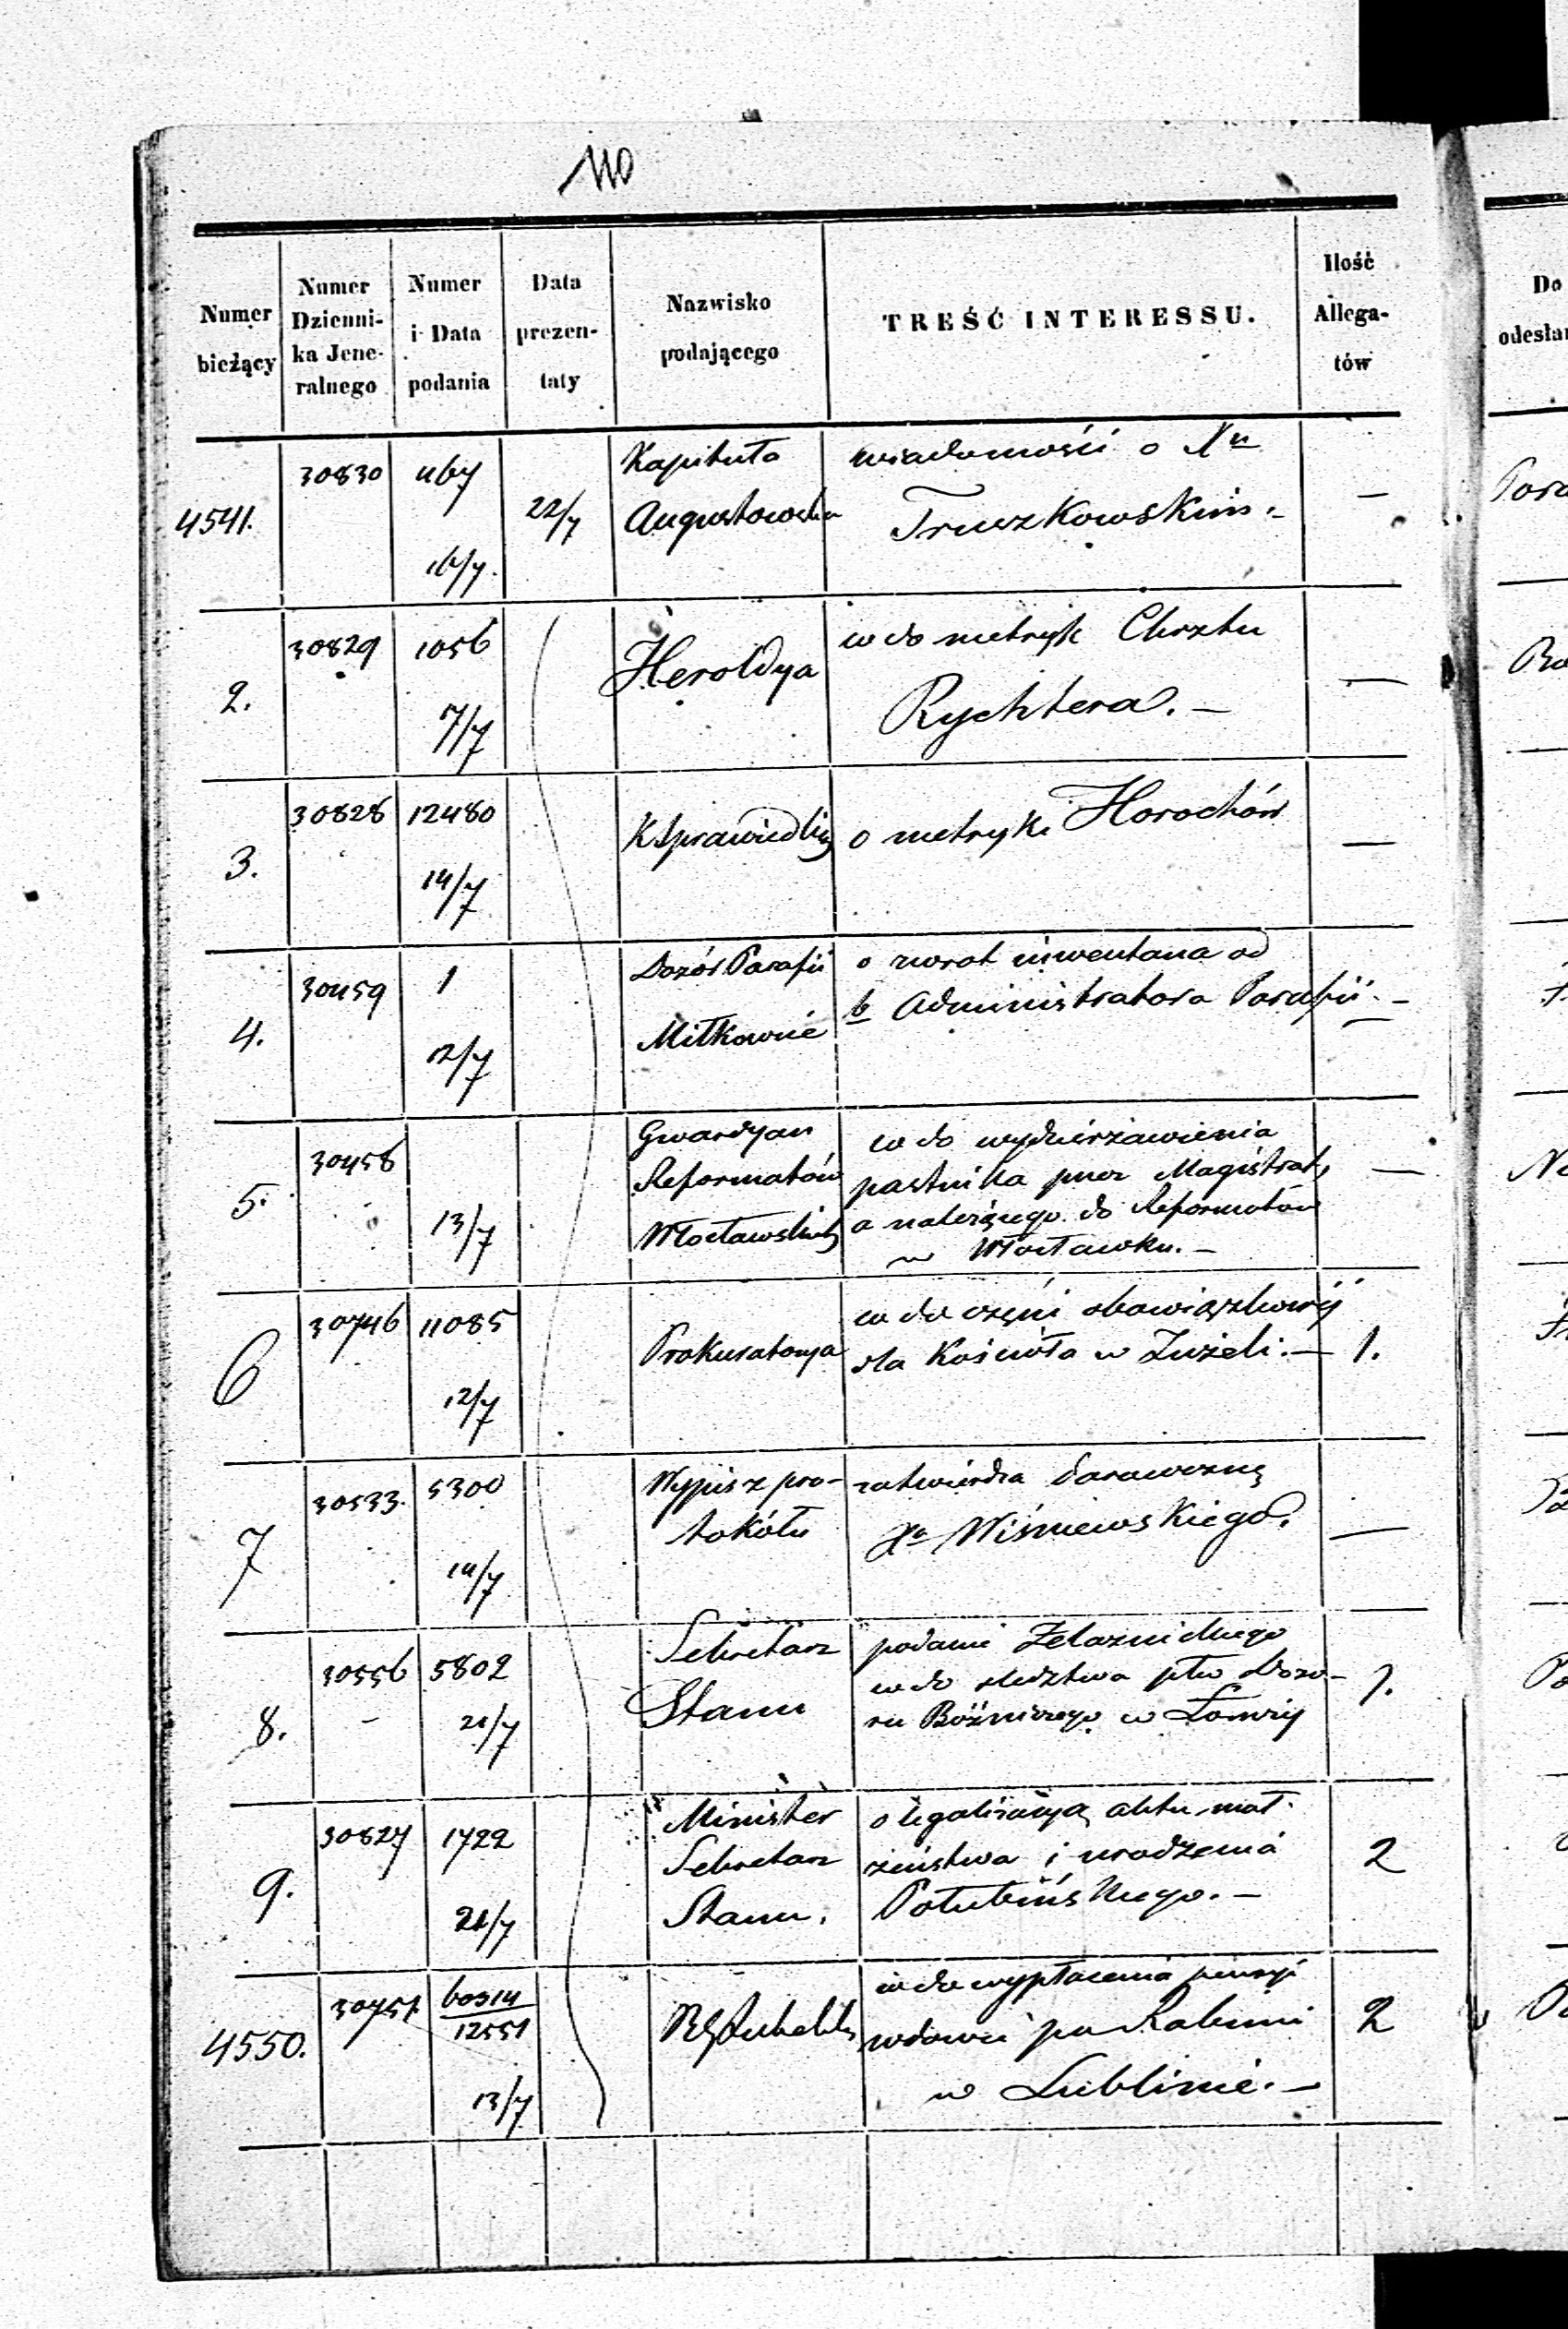 110
Numer bieżący
Numer Dzienni-ka Jene-ralnego
Numer i Data podania
Data prezen-taty
Nazwisko podającego
TREŚĆ INTERESSU.
Ilość Allega-tów
Do
odesłan
4541.
30830
467
16/7.
22/7
Kapituła
Augustowska
wiadomości o Xu
Truszkowskim.
—
2.
30829
1056
7/7
Heroldya
wdo metryk Chrztu
Rychtera. —
—
3.
30828
12480
14/7
KSprawiedliw
o metryki Horochów
—
4.
30459
1
12/7
Dozór Parafii
Miłkowie
o zwrot inwentarza od
b Administratora Parafii. —
—
5.
30458
13/7
Gwardyan
Reformatów
Włocławskich
wdo wydzierżawienia
pastwika przez Magistrat,
a należącego do Reformatów
w Włocławku. —
—
6
30746
11085
12/7
Prokuratorya
wdo części obowiązkowéj
dla Kościoła w Zuzeli. —
1.
7
30533.
5300
14/7
Wypis z pro-
tokółu
zatwierdza darowiznę
Xa Wiśniewskiego.
—
8.
30556
5802
21/7
Sekretarz
Stanu
podanie Żelaznickiego
wdo śledztwa płw Dozo-
ru Bóżniczego w Łomży
1.
9.
30827
1722
21/7
Minister
Sekretarz
Stanu.
o legalizacyą aktu mał-
żeństwa i urodzenia
Połubińskiego. —
2
4550.
30751.
60314
12551
13/7
RGLubelski
wdo wypłacenia pensyi
wdowie po Rabinie
w Lublinie. —
2